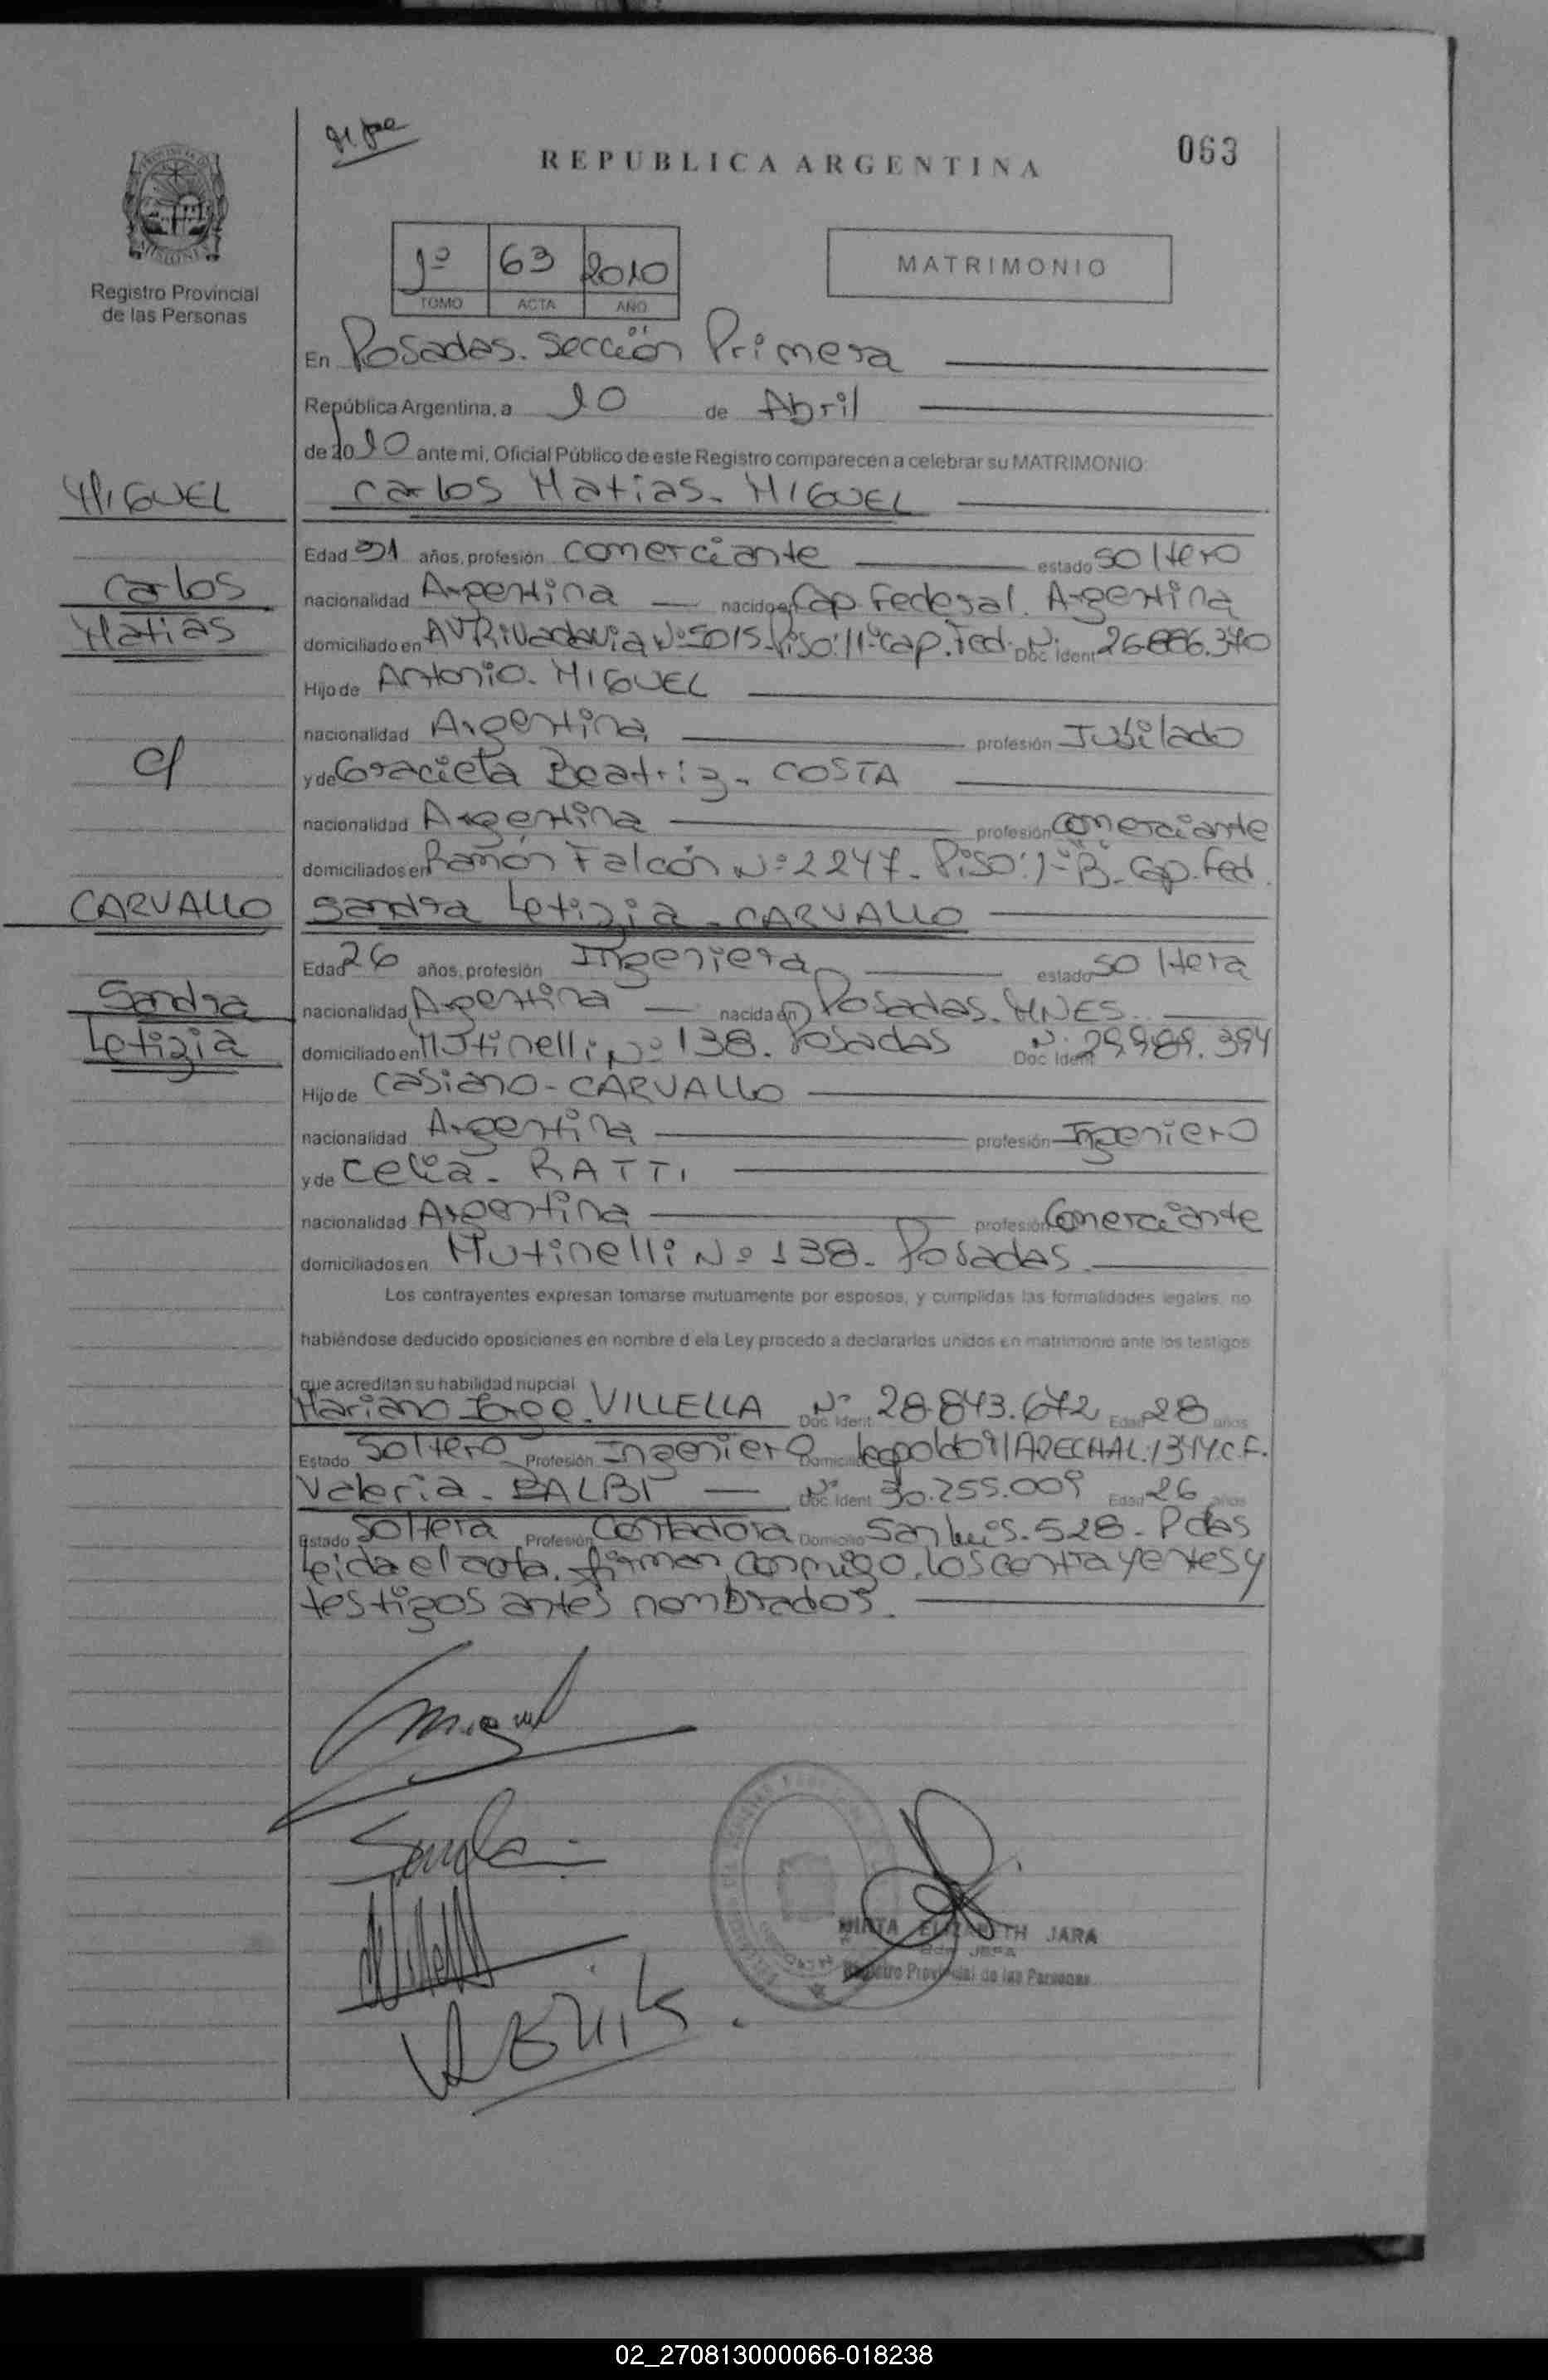 REPUBLICA ARGENTINA
063
MISIONES
Registro Provincial
de las Personas
1º 63 2010
TOMO ACTA AÑO
MATRIMONIO
En Posadas. Sección Primera
República Argentina, a 10 de Abril
de 2010 ante mi, Oficial Público de este Registro comparecen a celebrar su MATRIMONIO:
MIGUEL
Carlos Matias. MIGUEL
Edad 31 años, profesión comerciante estado soltero
Carlos
Matias
nacionalidad Argentina nacido en Cap. Federal. Argentina
domiciliado en AV Rivadavia Nº 5015. Piso: 11º Cap. Fed. Doc Ident Nº 26.886.340
Hijo de Antonio. MIGUEL
nacionalidad Argentina profesión Jubilado
c/
y de Graciela Beatriz. COSTA
nacionalidad Argentina profesión Comerciante
domiciliados en Ramón Falcón Nº 2247. Piso: 1º "B". Cap. Fed.
CARVALLO
Sandra Letizia. CARVALLO
Edad 26 años, profesión Ingeniera estado soltera
Sandra
Letizia
nacionalidad Argentina nacida en Posadas. MNES.
domiciliado en Mutinelli Nº 138. Posadas Doc Ident Nº 29.989.394
Hijo de Casiano - CARVALLO
nacionalidad Argentina profesión Ingeniero
y de Celia. RATTI
nacionalidad Argentina profesión Comerciante
domiciliados en Mutinelli Nº 138. Posadas.
Los contrayentes expresan tomarse mutuamente por esposos, y cumplidas las formalidades legales, no
habiéndose deducido oposiciones en nombre d ela Ley procedo a declararlos unidos en matrimonio ante los testigos
que acreditan su habilidad nupcial
Mariano Jorge. VILLELLA Doc Ident Nº 28.843.672 Edad 28 años
Estado Soltero Profesión Ingeniero Domicilio Leopoldo MARECHAL. 1344. C.F.
Valeria. BALBI Doc Ident Nº 30.255.009 Edad 26 años
Estado Soltera Profesión Contadora Domicilio San Luis. 528. Pdas
Leida el acta, firman conmigo, los contrayentes y
testigos antes nombrados.
MIRTA ELIZABETH JARA
JEFA
Registro Provincial de las Personas
02_270813000066-018238